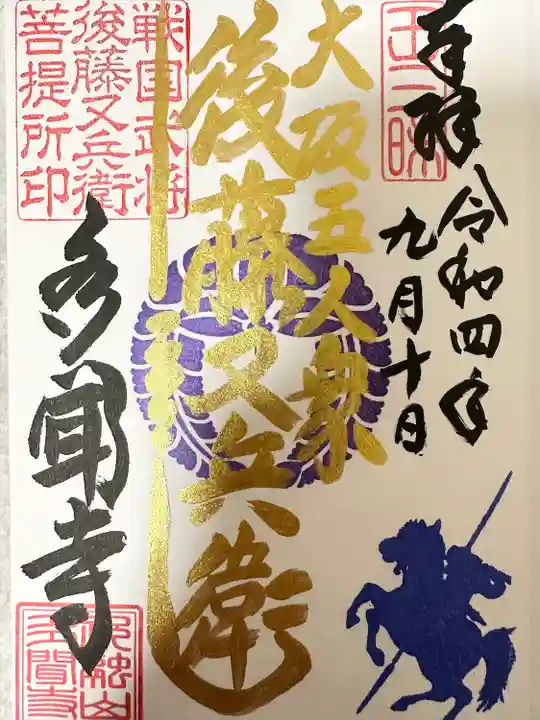 奉拝
令和四年
九月十日
大阪五人衆
後藤又兵衛
戦国武将
後藤又兵衛
菩提所印
多聞寺
多聞寺